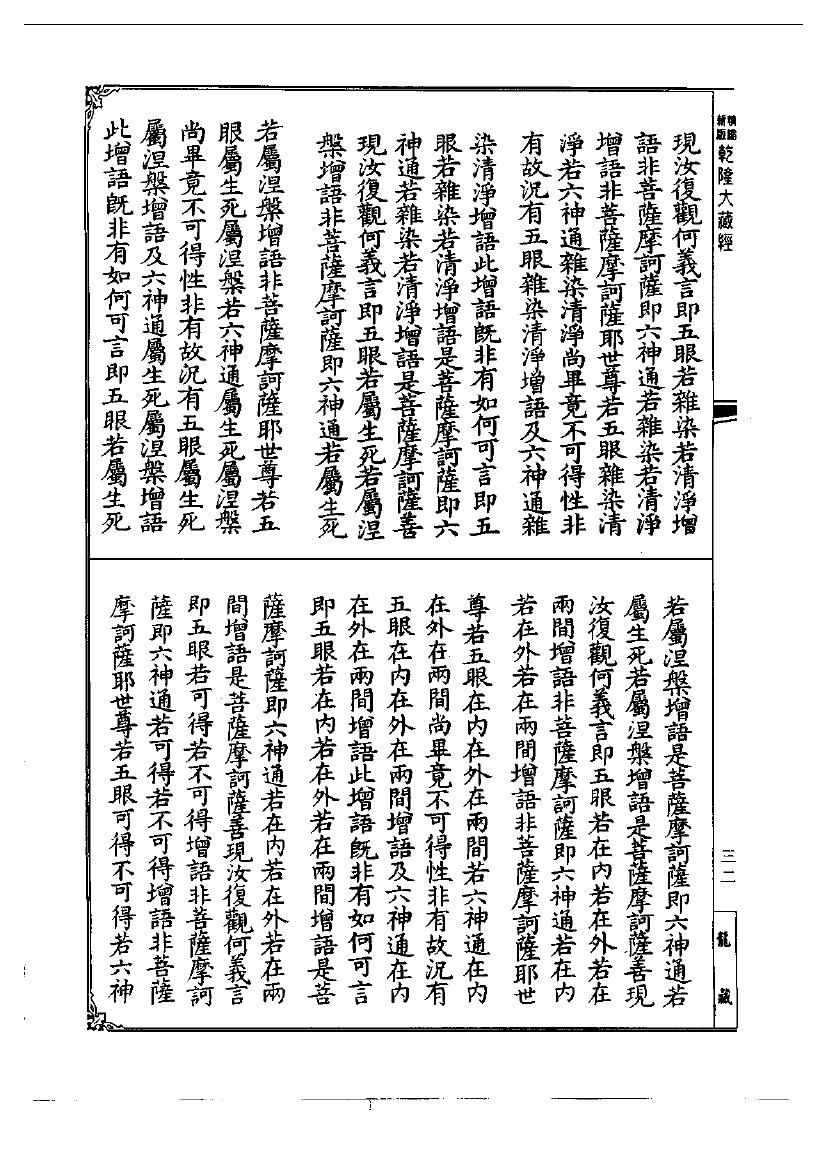 精縮
新版
乾隆大藏經
三二
龍藏
現汝復觀何義言即五眼若雜染若清淨增
語非菩薩摩訶薩即六神通若雜染若清淨
增語非菩薩摩訶薩耶世尊若五眼雜染清
淨若六神通雜染清淨尚畢竟不可得性非
有故況有五眼雜染清淨增語及六神通雜
染清淨增語此增語既非有如何可言即五
眼若雜染若清淨增語是菩薩摩訶薩即六
神通若雜染若清淨增語是菩薩摩訶薩善
現汝復觀何義言即五眼若屬生死若屬涅
槃增語非菩薩摩訶薩即六神通若屬生死
若屬涅槃增語非菩薩摩訶薩耶世尊若五
眼屬生死屬涅槃若六神通屬生死屬涅槃
尚畢竟不可得性非有故況有五眼屬生死
屬涅槃增語及六神通屬生死屬涅槃增語
此增語既非有如何可言即五眼若屬生死
若屬涅槃增語是菩薩摩訶薩即六神通若
屬生死若屬涅槃增語是菩薩摩訶薩善現
汝復觀何義言即五眼若在內若在外若在
兩間增語非菩薩摩訶薩即六神通若在內
若在外若在兩間增語非菩薩摩訶薩耶世
尊若五眼在內在外在兩間若六神通在內
在外在兩間尚畢竟不可得性非有故況有
五眼在內在外在兩間增語及六神通在內
在外在兩間增語此增語既非有如何可言
即五眼若在內若在外若在兩間增語是菩
薩摩訶薩即六神通若在內若在外若在兩
間增語是菩薩摩訶薩善現汝復觀何義言
即五眼若可得若不可得增語非菩薩摩訶
薩即六神通若可得若不可得增語非菩薩
摩訶薩耶世尊若五眼可得不可得若六神